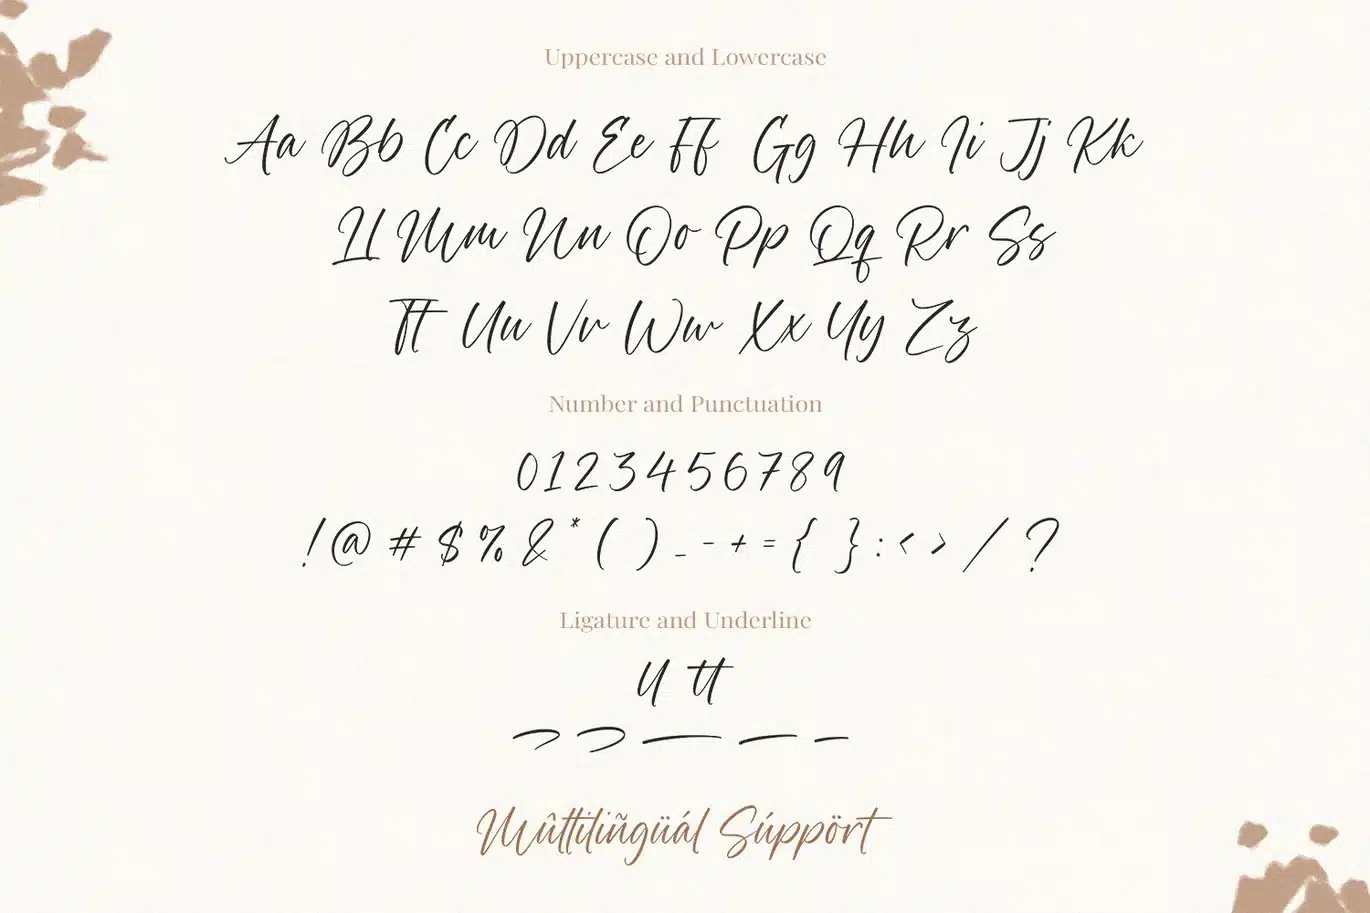 Uppercase and Lowercase
Aa Bb Cc Dd Ee Ff Gg Hh Ii Jj Kk
Ll Mm Nn Oo Pp Qq Rr Ss
Tt Uu Vv Ww Xx Yy Zz
Number and Punctuation
0123456789
!@#$%&*()_-+={}:<>/?
Ligature and Underline
ll tt
Mûltiliñgüál Súppört